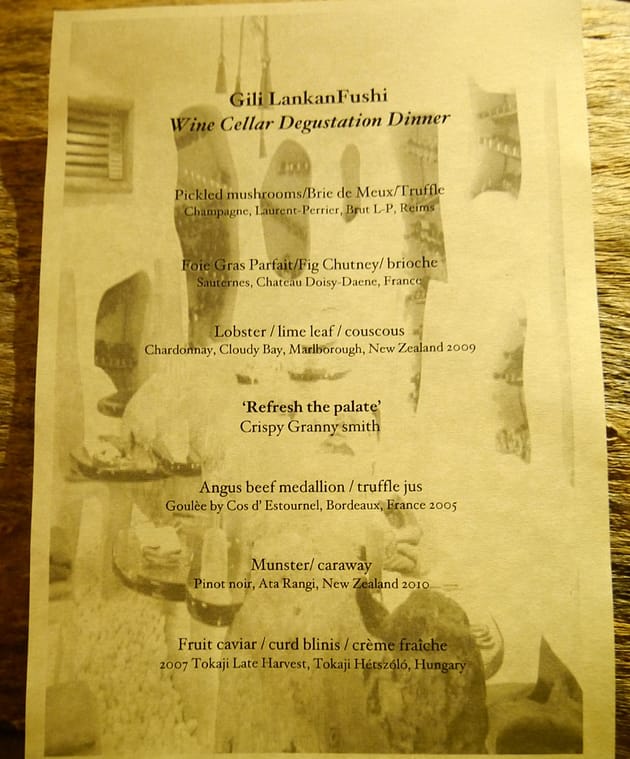 Gili LankanFushi
Wine Cellar Degustation Dinner
Pickled mushrooms/Brie de Meux/Truffle
Champagne, Laurent-Perrier, Brut L-P, Reims
Foie Gras Parfait/Fig Chutney/ brioche
Sauternes, Chateau Doisy-Daene, France
Lobster / lime leaf / couscous
Chardonnay, Cloudy Bay, Marlborough, New Zealand 2009
‘Refresh the palate’
Crispy Granny smith
Angus beef medallion / truffle jus
Goulèe by Cos d’ Estournel, Bordeaux, France 2005
Munster/ caraway
Pinot noir, Ata Rangi, New Zealand 2010
Fruit caviar / curd blinis / crème fraîche
2007 Tokaji Late Harvest, Tokaji Hétszóló, Hungary